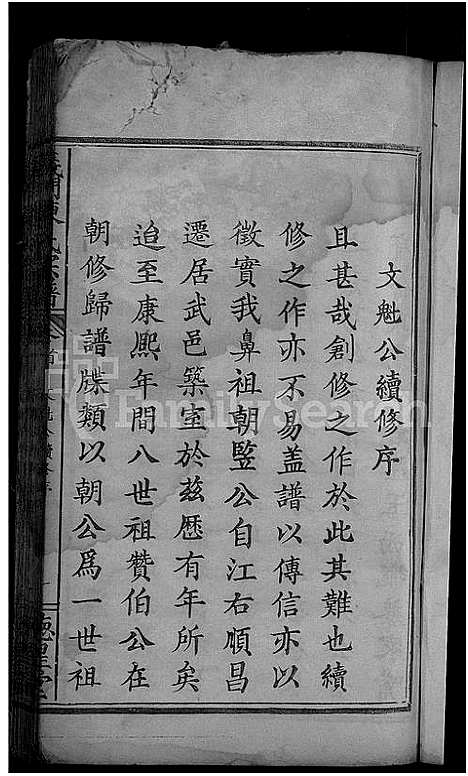 文魁公續修序
且甚哉創修之作於此其難也續
修之作亦不易蓋譜以傳信亦以
徵實我鼻祖朝監公自江右順昌
遷居武邑築室於兹歷有年所矣
迨至康熙年間八世祖贊伯公在
朝修歸譜牒類以朝公為一世祖
FamilySearch